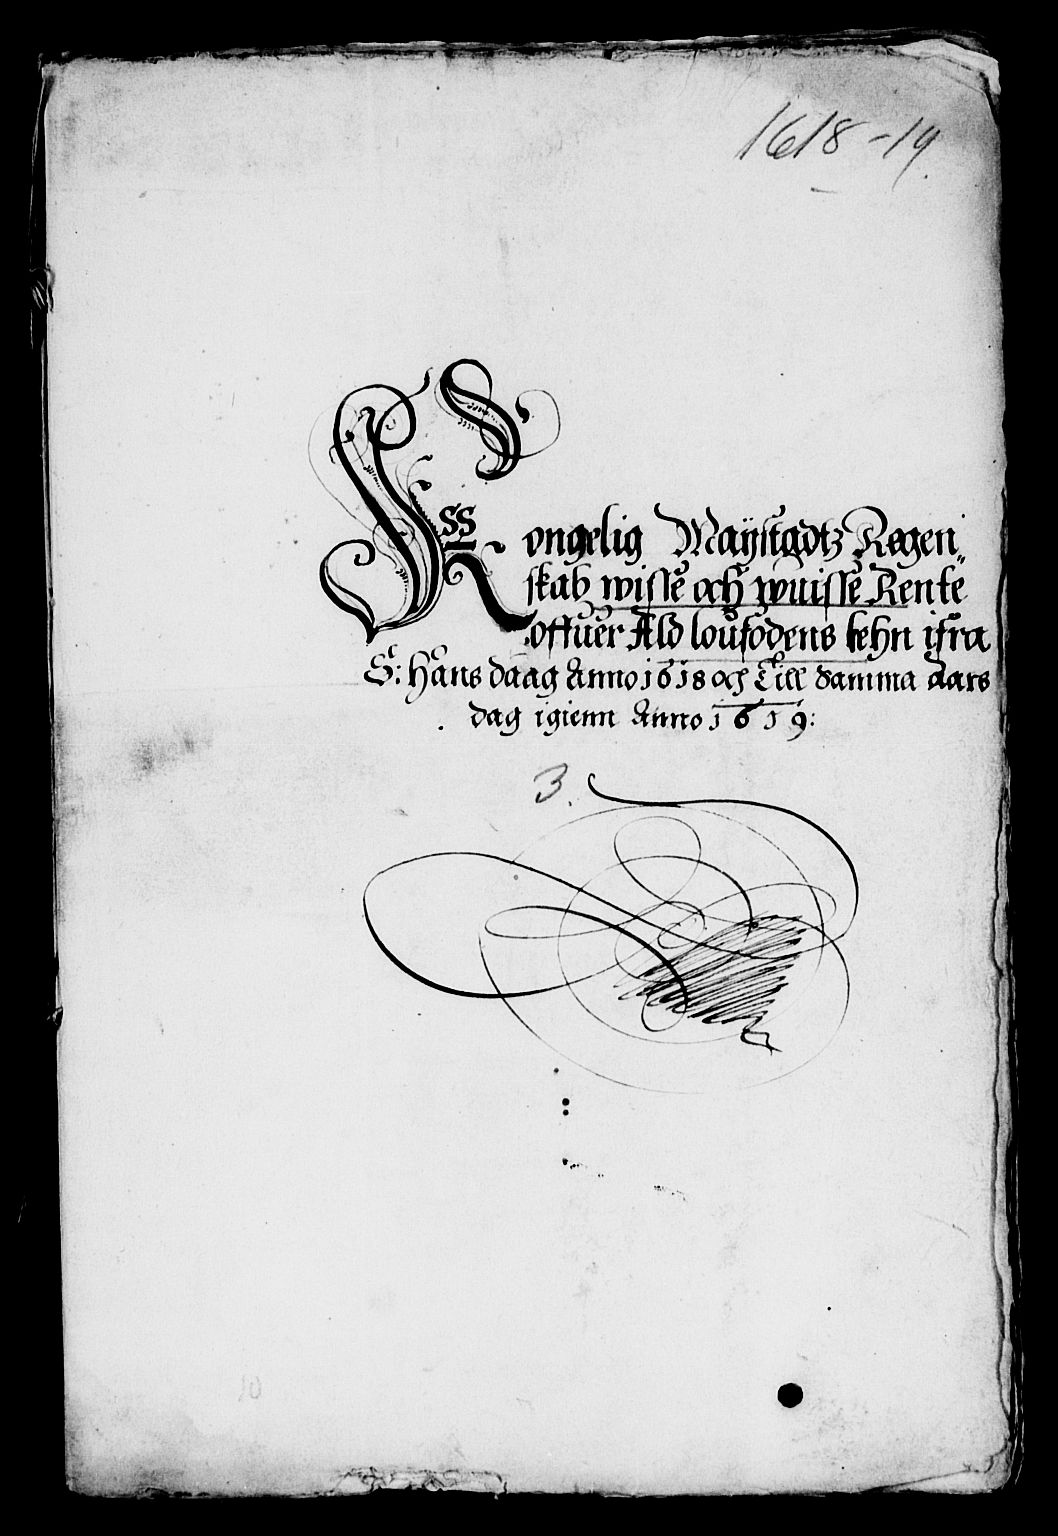 1618-19.
Kongelig Maysttadtz Regen„
skab wisse och wuisse Rente
offuer Ald loufodens lehn ifra
St: Hans daag Anno 1618 och Till samma aars
dag igienn Anno 1619:
3.